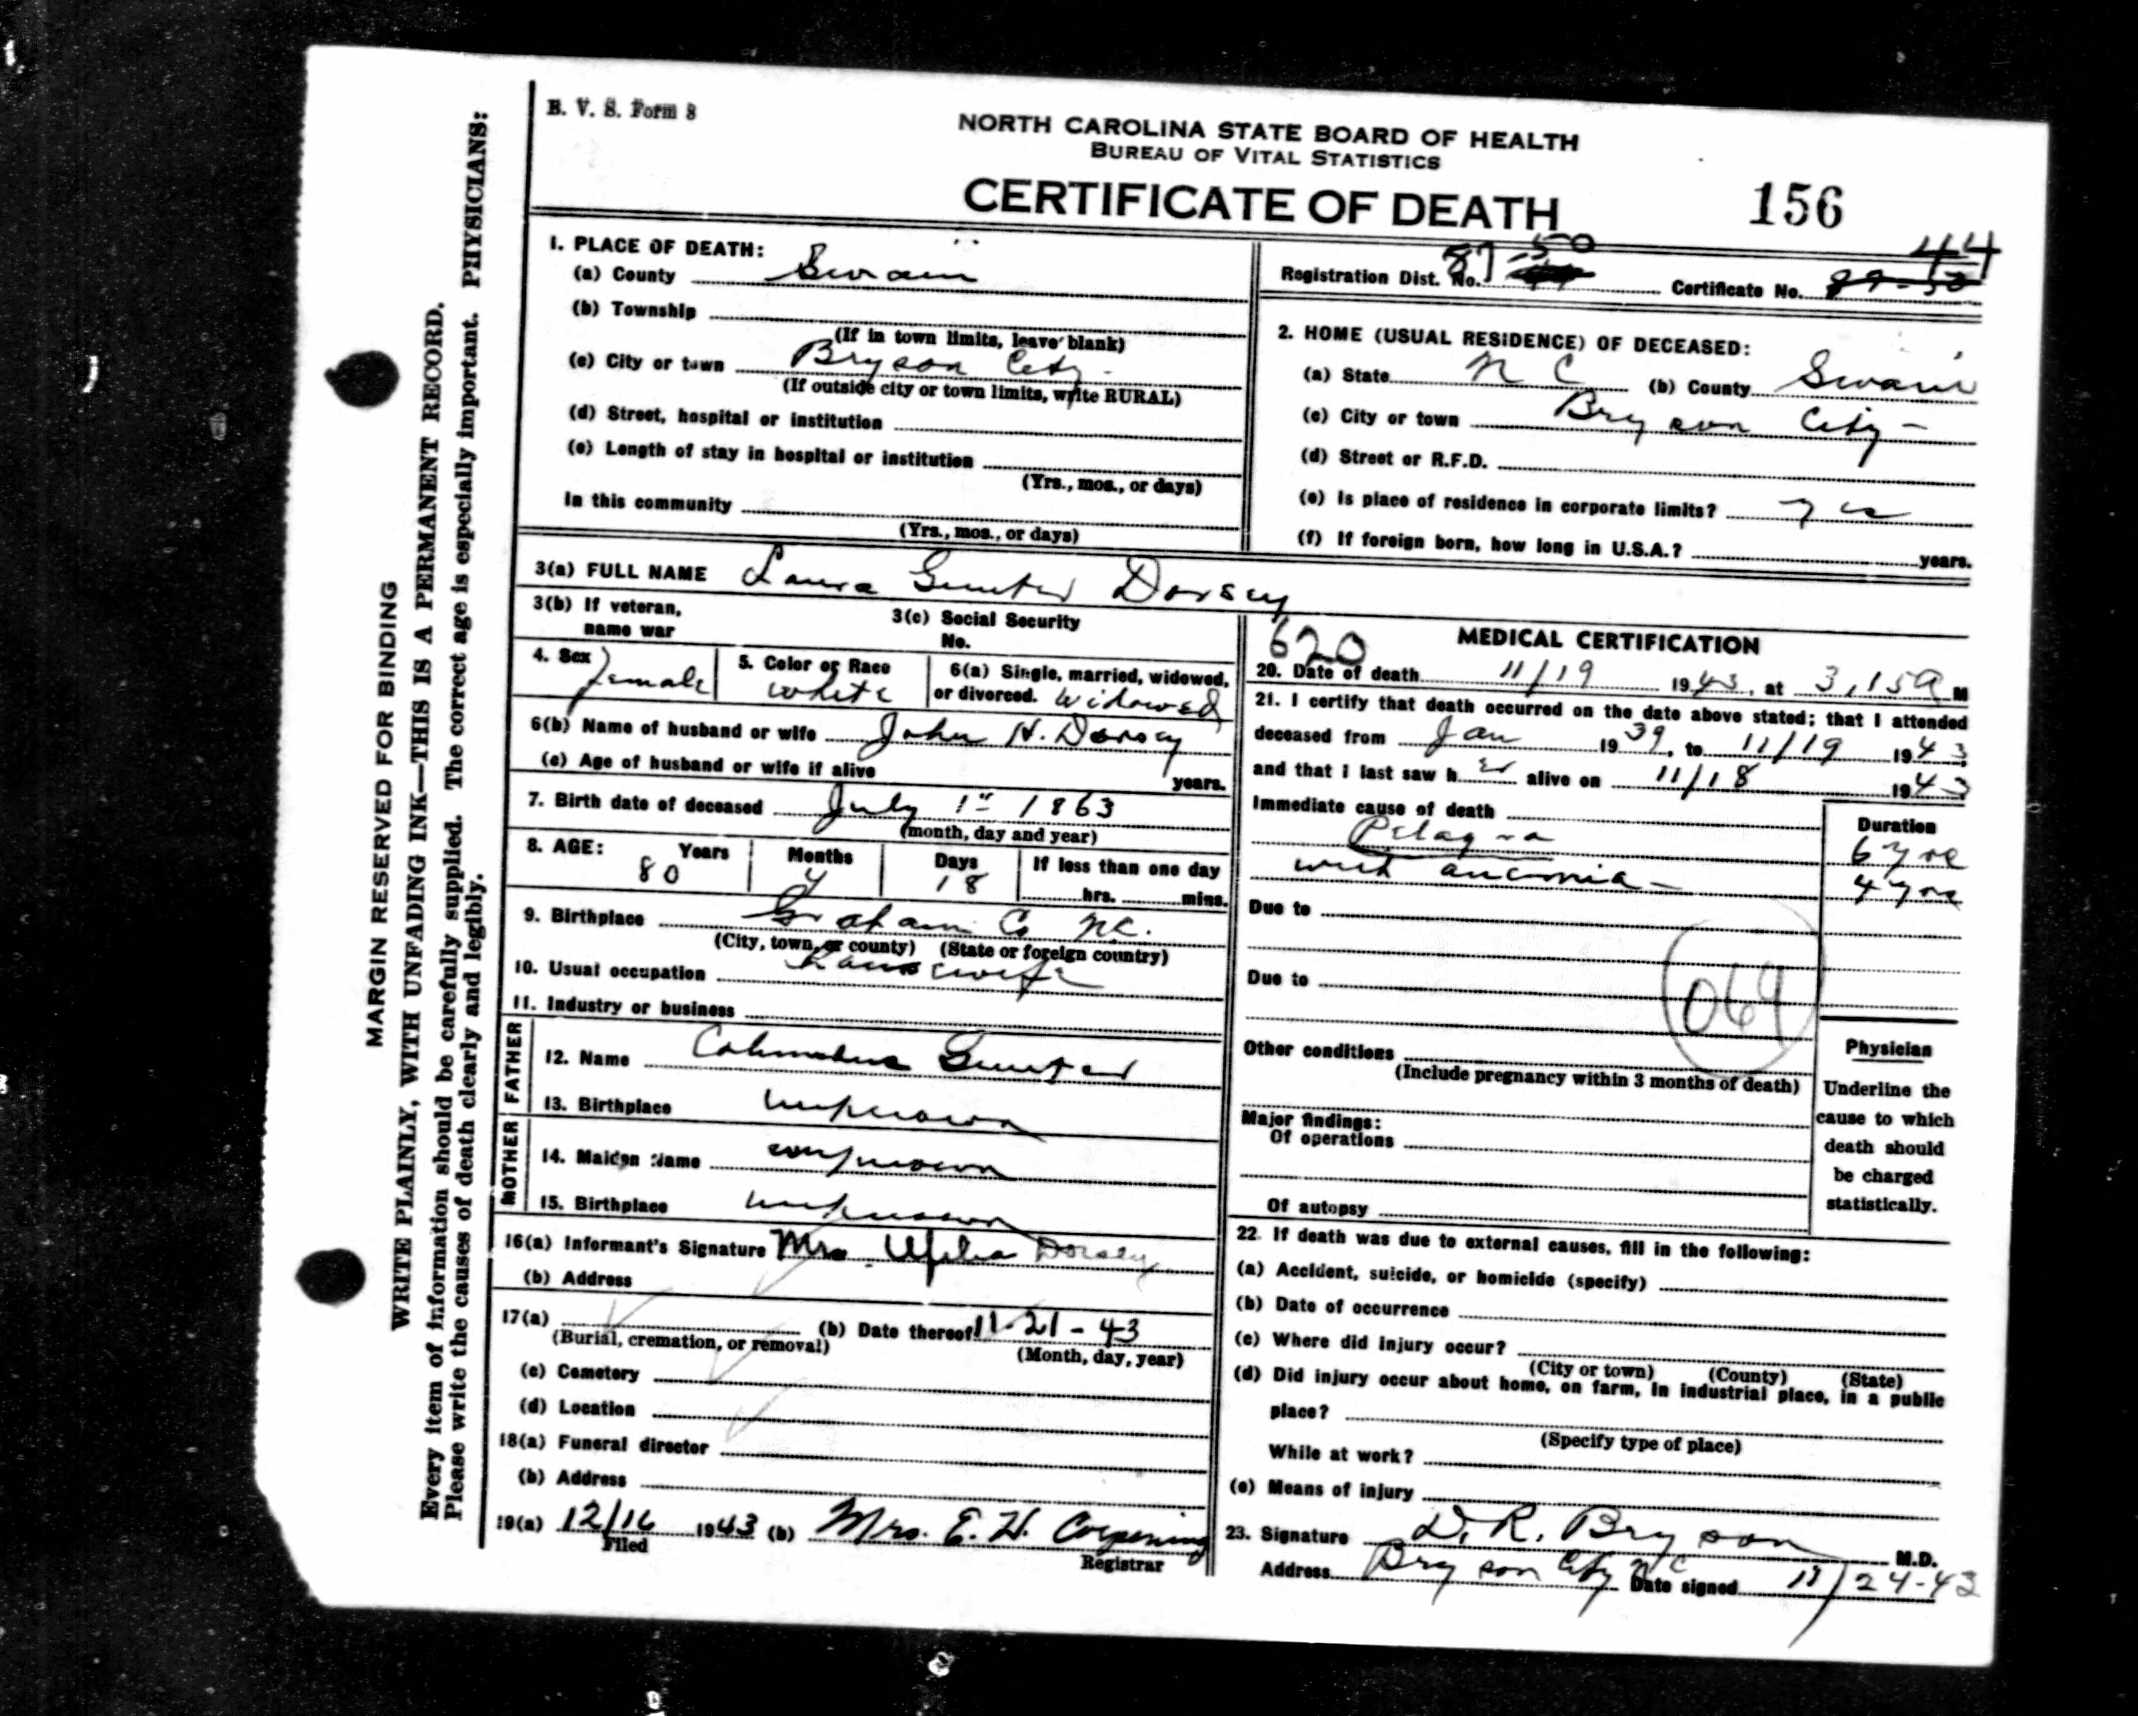 B. V. S. Form 8
NORTH CAROLINA STATE BOARD OF HEALTH
BUREAU OF VITAL STATISTICS
CERTIFICATE OF DEATH
156
1. PLACE OF DEATH:
(a) County Swain
(b) Township
(If in town limits, leave blank)
(c) City or town Bryson City -
(If outside city or town limits, write RURAL)
(d) Street, hospital or institution
(e) Length of stay in hospital or institution
(Yrs., mos., or days)
In this community
(Yrs., mos., or days)
Registration Dist. No. 87-50 Certificate No. 44
2. HOME (USUAL RESIDENCE) OF DECEASED:
(a) State N C (b) County Swain
(c) City or town Bryson City -
(d) Street or R.F.D.
(e) Is place of residence in corporate limits? yes
(f) If foreign born, how long in U.S.A.? years.
3(a) FULL NAME Laura Gunter Dorsey
3(b) If veteran, name war
3(c) Social Security No.
4. Sex female
5. Color or Race white
6(a) Single, married, widowed, or divorced. Widowed
6(b) Name of husband or wife John H. Dorsey
(c) Age of husband or wife if alive years.
7. Birth date of deceased July 1st 1863
(month, day and year)
8. AGE: Years 80 Months 4 Days 18 If less than one day
hrs. mins.
9. Birthplace Graham Co N.C.
(City, town, or county) (State or foreign country)
10. Usual occupation Housewife
11. Industry or business
FATHER
12. Name Columbus Gunter
13. Birthplace unknown
MOTHER
14. Maiden Name unknown
15. Birthplace unknown
16(a) Informant's Signature Mrs. Dorsey
(b) Address
17(a) (b) Date thereof 11-21-43
(Burial, cremation, or removal) (Month, day, year)
(c) Cemetery
(d) Location
18(a) Funeral director
(b) Address
19(a) 12/16 1943 (b) Mrs. E. H. Corpening
Filed Registrar
620
MEDICAL CERTIFICATION
20. Date of death 11/19 1943, at 3,15 a M
21. I certify that death occurred on the date above stated; that I attended
deceased from Jan 1939, to 11/19 1943,
and that I last saw her alive on 11/18 1943
Immediate cause of death Duration
Pelagra 6 yrs
with anemia - 4 yrs
Due to
Due to
064
Other conditions
(Include pregnancy within 3 months of death)
Major findings:
Of operations
Of autopsy
Physician
Underline the
cause to which
death should
be charged
statistically.
22. If death was due to external causes, fill in the following:
(a) Accident, suicide, or homicide (specify)
(b) Date of occurrence
(c) Where did injury occur?
(City or town) (County) (State)
(d) Did injury occur about home, on farm, in industrial place, in a public
place?
(Specify type of place)
While at work?
(e) Means of injury
23. Signature D. R. Bryson M.D.
Address Bryson City N C Date signed 11/24-43
MARGIN RESERVED FOR BINDING
WRITE PLAINLY, WITH UNFADING INK—THIS IS A PERMANENT RECORD.
Every item of information should be carefully supplied. The correct age is especially important. PHYSICIANS:
Please write the causes of death clearly and legibly.